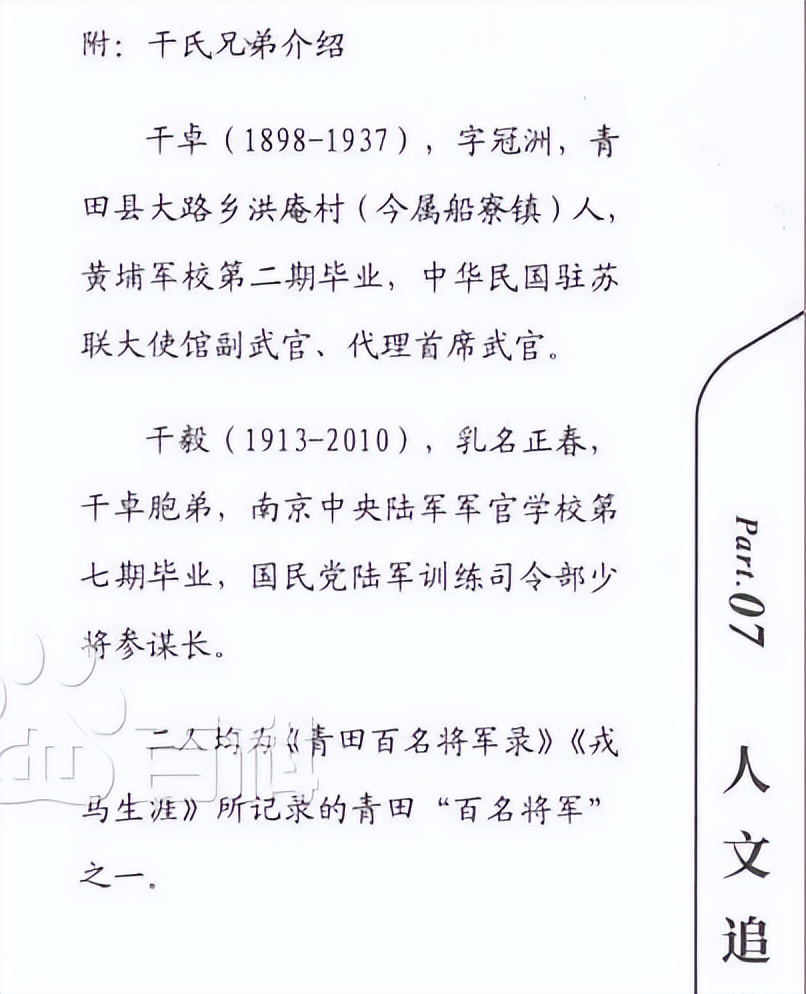 附：干氏兄弟介绍
干卓（1898-1937），字冠洲，青
田县大路乡洪庵村（今属船寮镇）人，
黄埔军校第二期毕业，中华民国驻苏
联大使馆副武官、代理首席武官。
干毅（1913-2010），乳名正春，
干卓胞弟，南京中央陆军军官学校第
七期毕业，国民党陆军训练司令部少
将参谋长。
二人均为《青田百名将军录》《戎
马生涯》所记录的青田“百名将军”
之一。
Part.07
人文追
百科